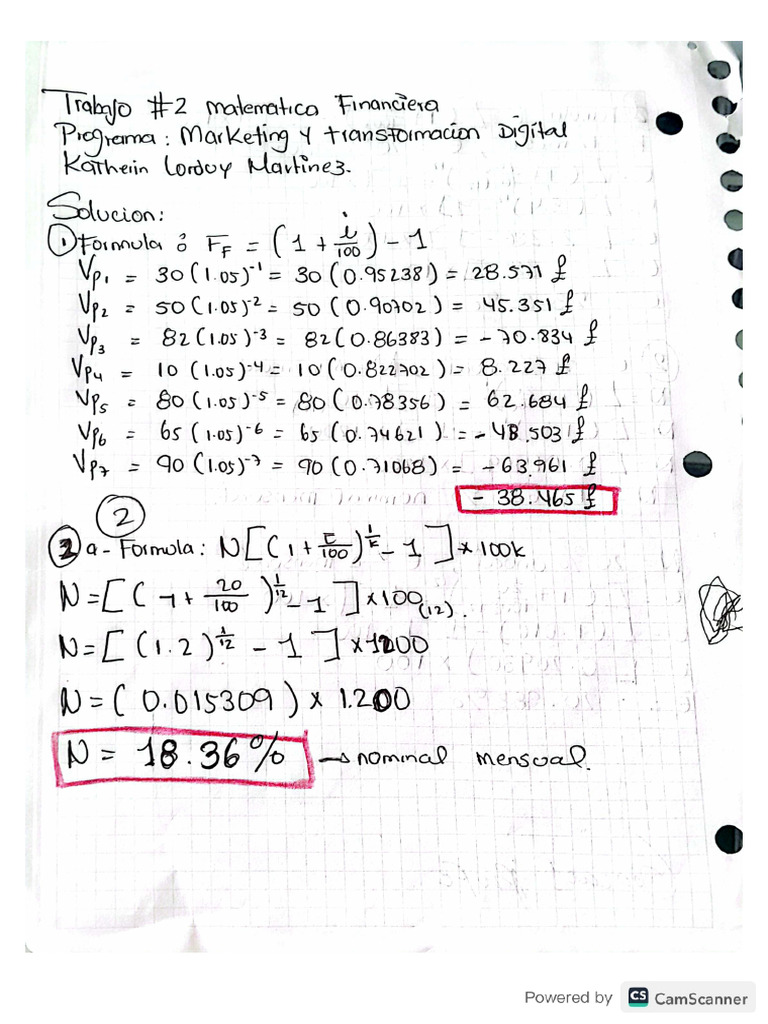 Trabajo #2 matematica Financiera
Programa: Marketing y transformacion Digital
Katherin Lorduy Martinez.
Solucion:
① Formula ó F_F = (1 + i/100) - 1
Vp1 = 30(1.05)^-1 = 30(0.95238) = 28.571 £
Vp2 = 50(1.05)^-2 = 50(0.90702) = 45.351 £
Vp3 = 82(1.05)^-3 = 82(0.86383) = -70.834 £
Vp4 = 10(1.05)^-4 = 10(0.822702) = 8.227 £
Vp5 = 80(1.05)^-5 = 80(0.78356) = 62.684 £
Vp6 = 65(1.05)^-6 = 65(0.74621) = -48.503 £
Vp7 = 90(1.05)^-7 = 90(0.71068) = -63.961 £
- 38.465 £
②
2 a- Formula: N[(1 + E/100)^1/k - 1] * 100k
N = [(1 + 20/100)^1/12 - 1] x 100(12).
N = [(1.2)^1/12 - 1] x 1200
N = (0.015309) x 1.200
N = 18.36% → nominal mensual.
Powered by CS CamScanner